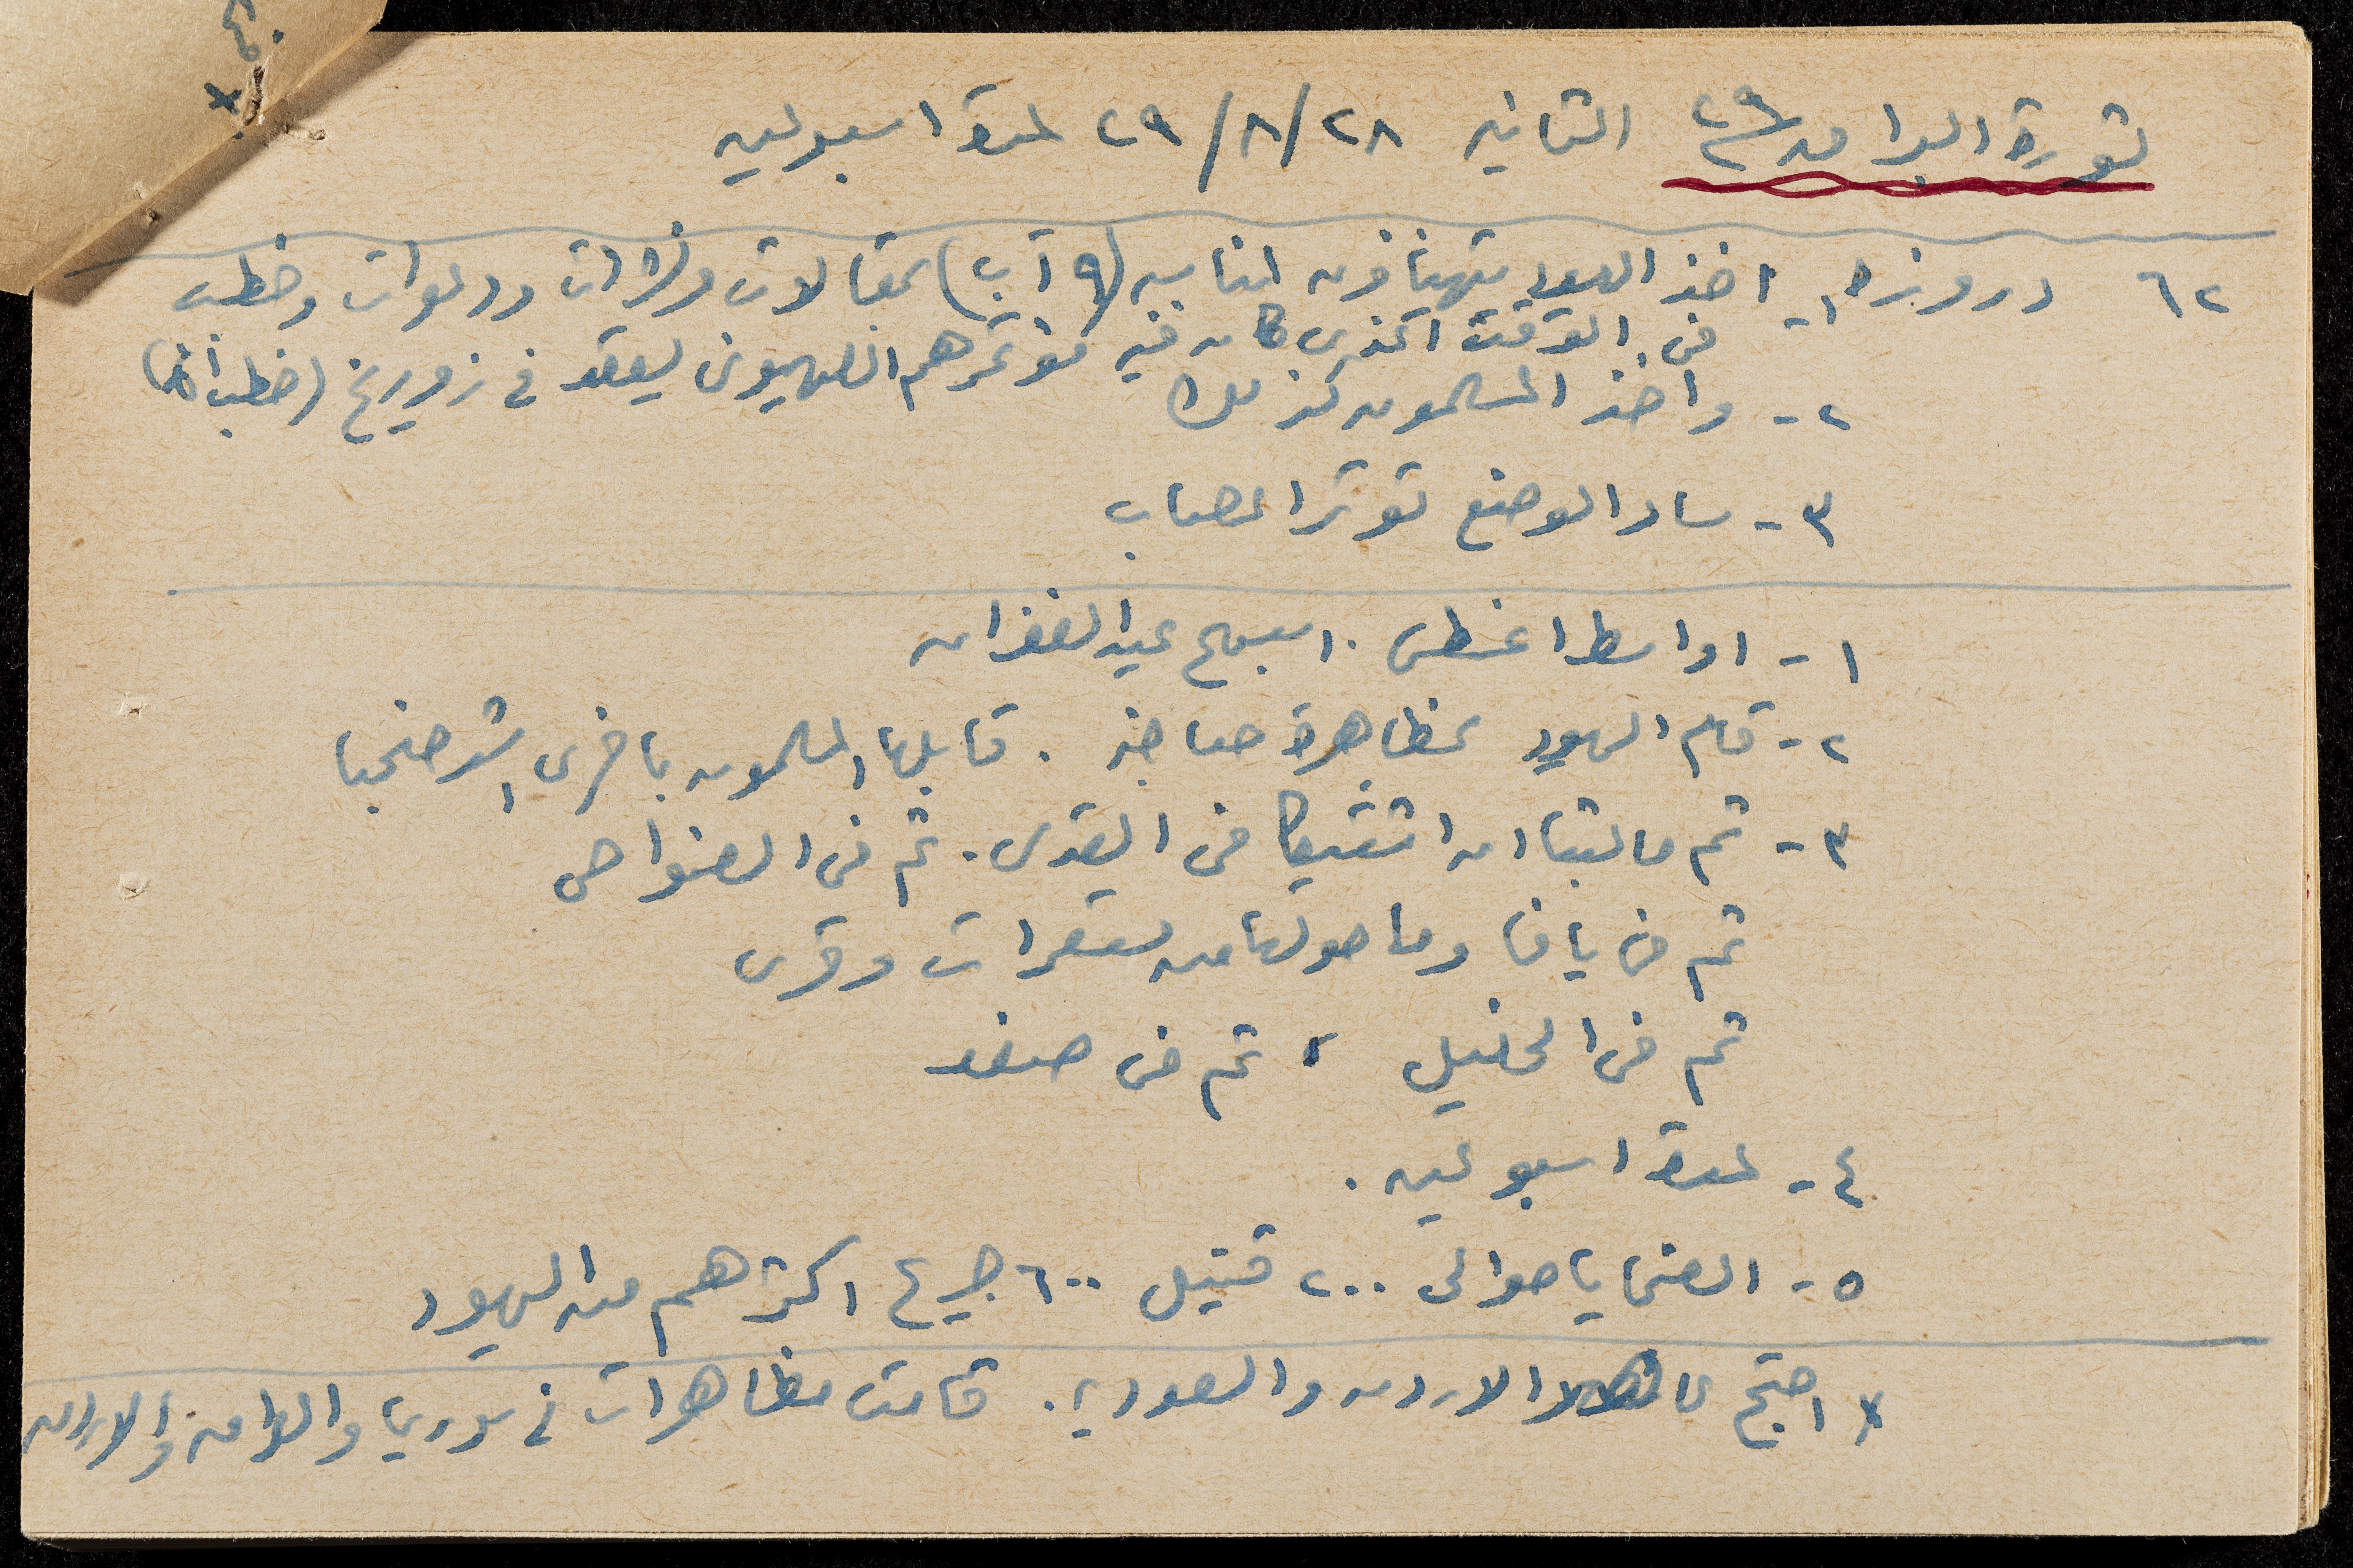 ثورة البراق ٢٩/٢ الثانية ٢٨/٨/٢٩ لمدة اسبوعين
٦٢ دروزة ١- اخذ اليهود يتهيئون لمناسبة (٩ آب) بمقالات ونشرات ودعوات وخطب
في الوقت الذي كان فيه مؤتمرهم الصهيوني يعقد في زوريخ (خطب
٢- واخذ المسلمون كذلك
٣- ساد الوضع توتر اعصاب
١- اواسط اغسطس. اسبوع عيد الغفران
٢- قام اليهود بمظاهرة صاخبة. قابلها المسلمون باخرى اشد صخبا
٣- ثم ما لبثا ان اشتبكا في القدس. ثم في الضواحي
ثم في يافا وما حولها من مستعمرات وقرى
ثم في الخليل، ثم في صفد
٤- لمدة اسبوعين.
٥- الضحايا حوالى ٢٠٠ قتيل ٦٠٠ جريح اكثرهم من اليهود
x احتج الاردن والسعودية. قامت مظاهرات في سوريا والعراق والاردن